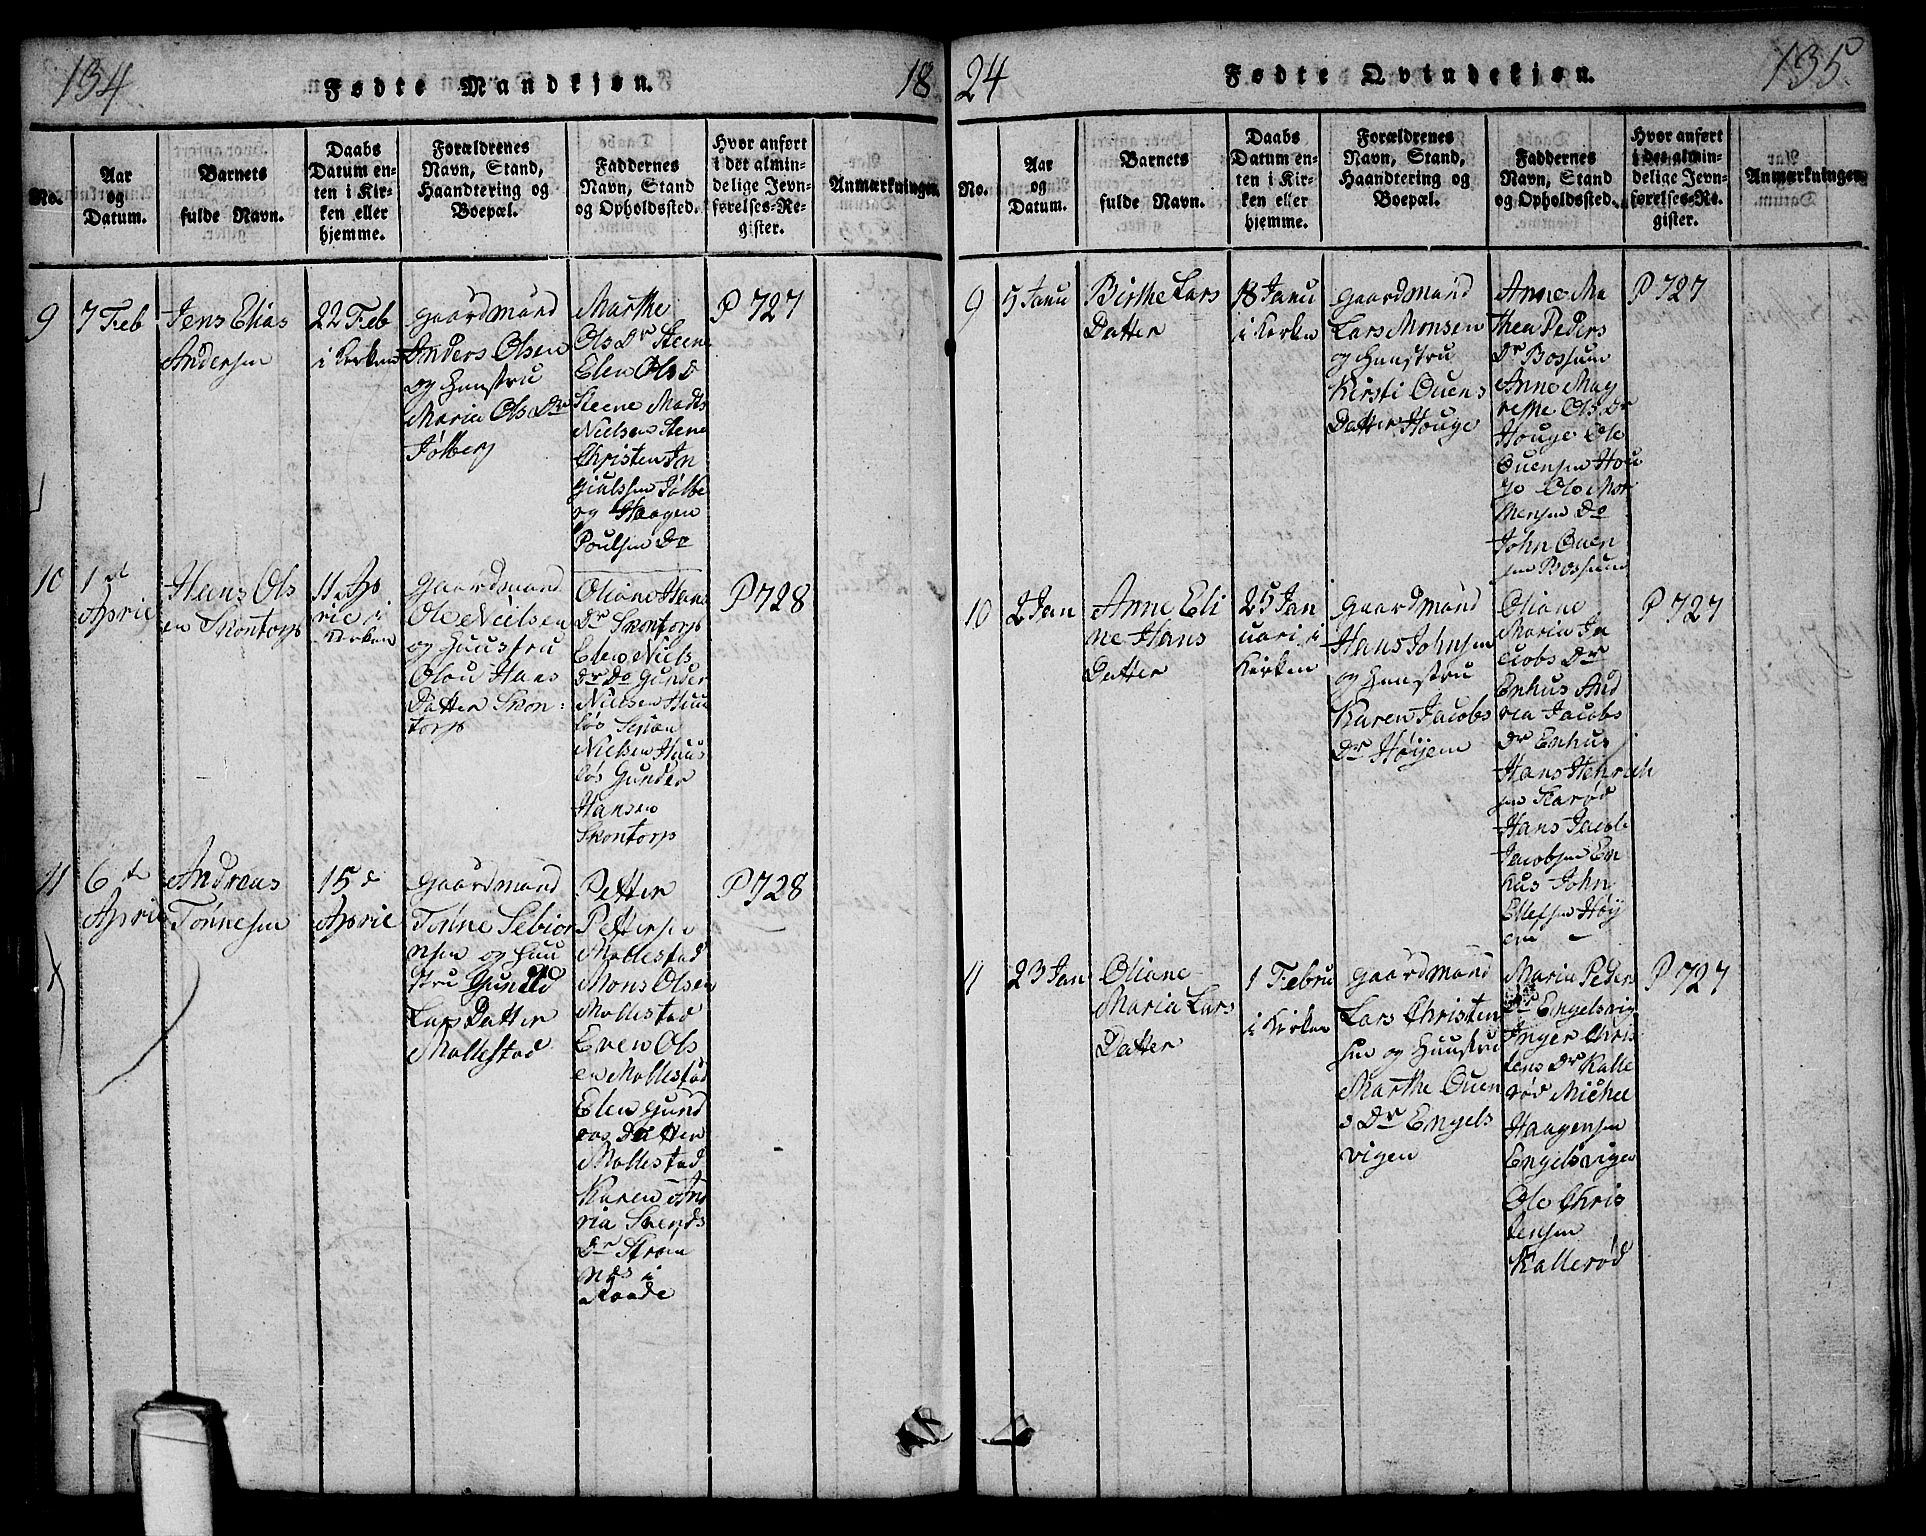 134
Fødte Mandkjøn.
18
No.
Aar
og
Datum.
Barnets
fulde Navn.
Daabs
Datum en-
ten i Kir-
ken eller
hjemme.
Forældrenes
Navn, Stand,
Haandtering og
Boepæl.
Faddernes
Navn, Stand
og Opholdssted.
Hvor anført
i det almin-
delige Jevn-
førelses-Re-
gister.
Anmærkninger.
9
7 Feb
Jens Elias
Andersen
22 Feb
i Kirken
Gaardmand
Anders Olsen
og Huustru
Maria Ols Dr
Jølberg
Marthe
Ols Dr Steene
Elen Ols D
Steene Mads
Nielsen Stene
Christen In
giulssen Jølbe
og Haagen
Poulsen Do
P 727
10
1st
April
Hens Ols
en Skontorp
11 Ap
ril i
Kirken
Gaardmand
Ole Nielsen
og Huustru
Olou Hans
Datter Skon-
torp
Oliane Hans
Dr Skontorp
Elen Niels
Dr Do Gunder
Nielsen Huu
løs Sørien
Nielsen Huus
løs Gunder
Hansen
Skontorp
P 728
11
6te
April
Andreas
Tønnesen
15d
April
Gaardmand
Tønne Sebior
nsen og Huu
stru Gunild
Lars Datter
Mollestad
Petter
Pettersen
Mollestad
Mons Olsen
Mollestad
Even Ols
en Mollestad
Elen Gund
ros Datter
Mollestad
Karen An
ria Svends
Dr Strøm
nds i
Raade
P 728
24
Fødte Qvindekjøn.
135
No.
Aar
og
Datum.
Barnets
fulde Navn.
Daabs
Datum en-
ten i Kir-
ken eller
hjemme.
Forældrenes
Navn, Stand,
Haandtering og
Boepæl.
Faddernes
Navn, Stand
og Opholdssted.
Hvor anført
i det almin-
delige Jevn-
førelses-Re-
gister.
Anmærkninger.
9
5 Janu
Birthe Lars
Datter
18 Janu
i Kirken
Gaardmand
Lars Monsen
og Huustru
Kirsti Ouens
Datter Houge
Anne Ma
thea Peders
Dr Bossum
Anne May
rethe Ols Dr
Houge Ole
Ouensen Hou
ge Ole Mor
tensen Do
John Ouen
sen Bossum
P 727
10
2 Jan
Anne Eli
ne Hans
Datter
25 Jan
uari i
Kirken
Gaardmand
Hans Johnsen
og Huustru
Karen Jacobs
Dr Høijem
Oliane
Maria Ja
cobs Dr
Enhus And
ria Jacobs
Dr Enhus
Hans Henrich
sen Karød
Hans Jacob
Jacobsen En
hus John
Ellefsen Høij
em
P 727
11
23 Jan
Oliane
Maria Lars
Datter
1 Febru
i Kirken
Gaardmand
Lars Christen
sen og Huustru
Marthe Ouen
s Dr Engels
vigen
Maria Peder
Dr Engelsvig
Inger Chris
tens Dr Kalle
rød Michel
Haagensen
Engelsvigen
Ole Chris
tensen
Kallerød
P 727